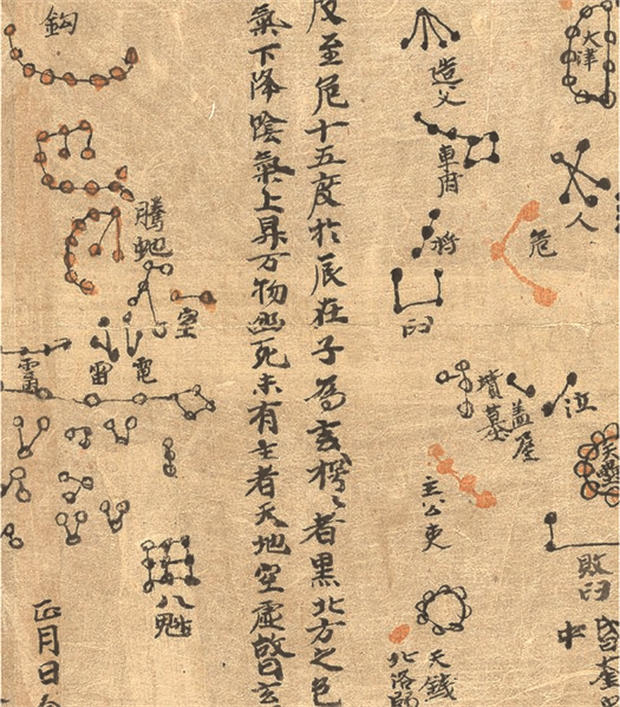 大津
人
泣
天壘
敗臼
昏奎
中
危
蓋屋
墳墓
造父
車府
臼
天錢
北洛師
度至危十五度於辰在子為玄枵〻者黑北方之色
氣下降陰氣上昇万物幽死未有生者天地空虛
騰虵
室
電
雷
八魁
鈎
正月日